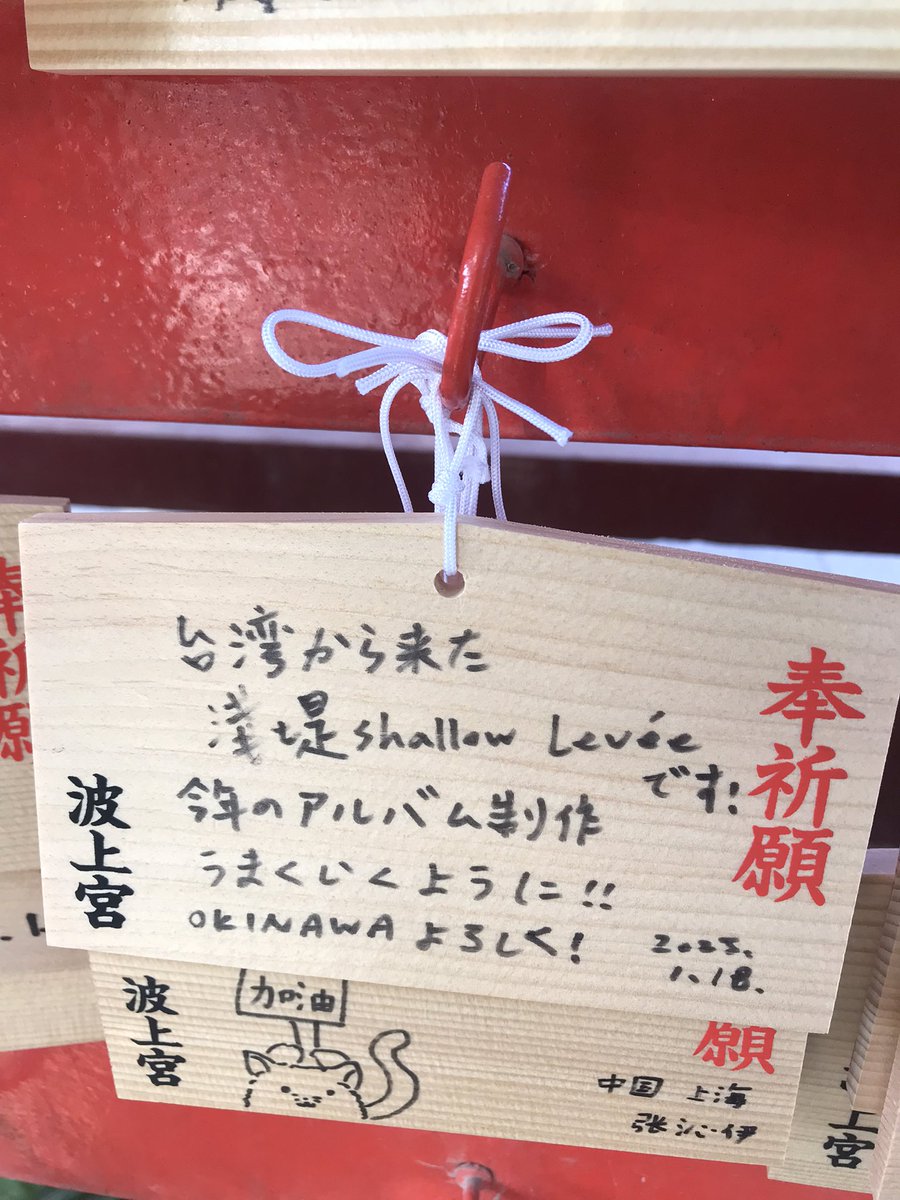 奉祈願
台湾から来た
浅堤shallow Levée
です!
今年のアルバム制作
うまくいくように!!
OKINAWAよろしく!
2023.
1.18.
波上宮
奉祈願
波上宮
加油
願
中国 上海
张沁伊
上宮